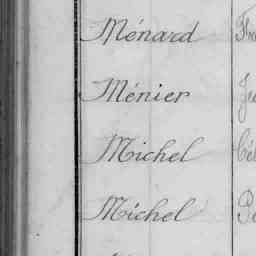 Ménard
Ménier
Michel
Michel